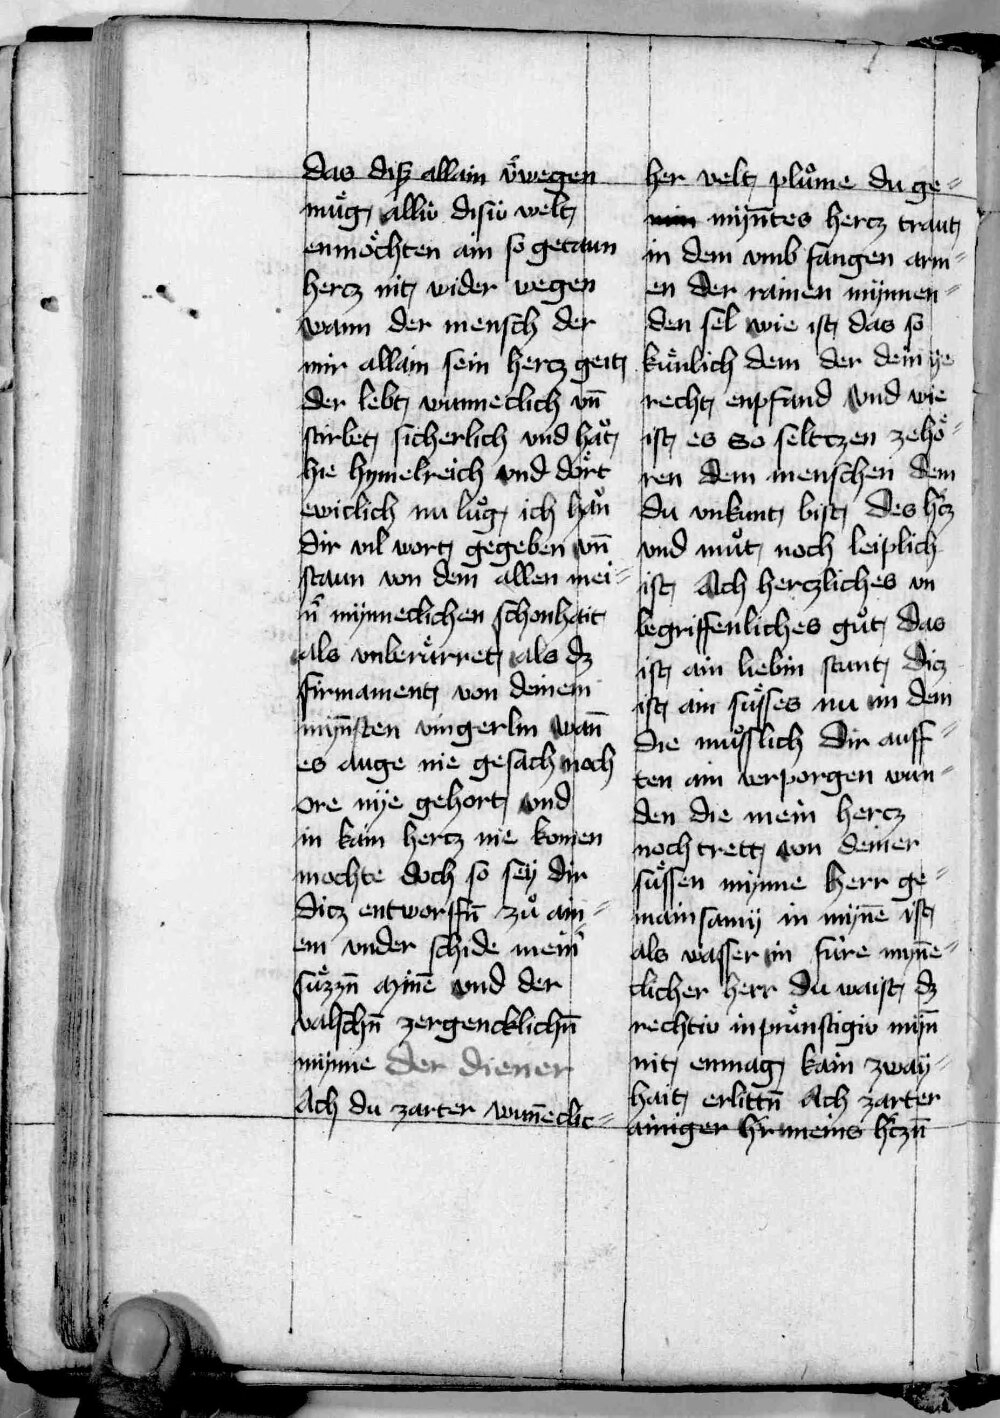 das disz allain v̈wegen
mu̇g alliu disiu welt
enmöchten ain so getaun
hercz nit wider wegen
wann der mensch der
mir allain sein hercz geit
der lebt wunneclich vn̄
stirbet sicherlich vnd haut
hie hymelreich vnd dört
ewiclich nu lůg ich haun
dir vil wort gegeben vn̄
staun von dem allen mei-
n̄ mynneclichen schonhait
als vnberürret als dz
firmament von deinem
myn̄sten vingerlin wan̄
es auge nie gesach noch
ore nye gehort vnd
in kain hercz nie komen
mochte doch so sey dir
dicz entworffn̄ zů ain-
em vnder schide mein̄
süzzn̄ mine vnd der
valschn̄ zergencklichn̄
mynne der diener
Ach du zarter wun̄eclic-
her velt plůme du ge-
myn̄tes hercz traut
in dem vmb fangen arm-
en der rainen mynnen-
den sel wie ist das so
künlich dem der dein ye
recht enpfand vnd wie
ist es so seltczen zehö-
ren dem menschen dem
du vnkunt bist des hcz
vnd můt noch leiplich
ist Ach herczliches vn
begriffenliches gůt das
ist ain liebin stunt dicz
ist ain süsses nu in dem
die můsslich dir auff-
ten ain verporgen wun-
den die mein hercz
noch trett von deiner
süssen mynne herr ge-
mainsamy in myn̄e ist
als wasser in füre myn̄e-
clicher herr du waist dz
rechtiv inprünstigiv myn̄
nit enmag kain zway-
hait erlittn̄ Ach zarter
ainiger hr̄ meins hczn̄